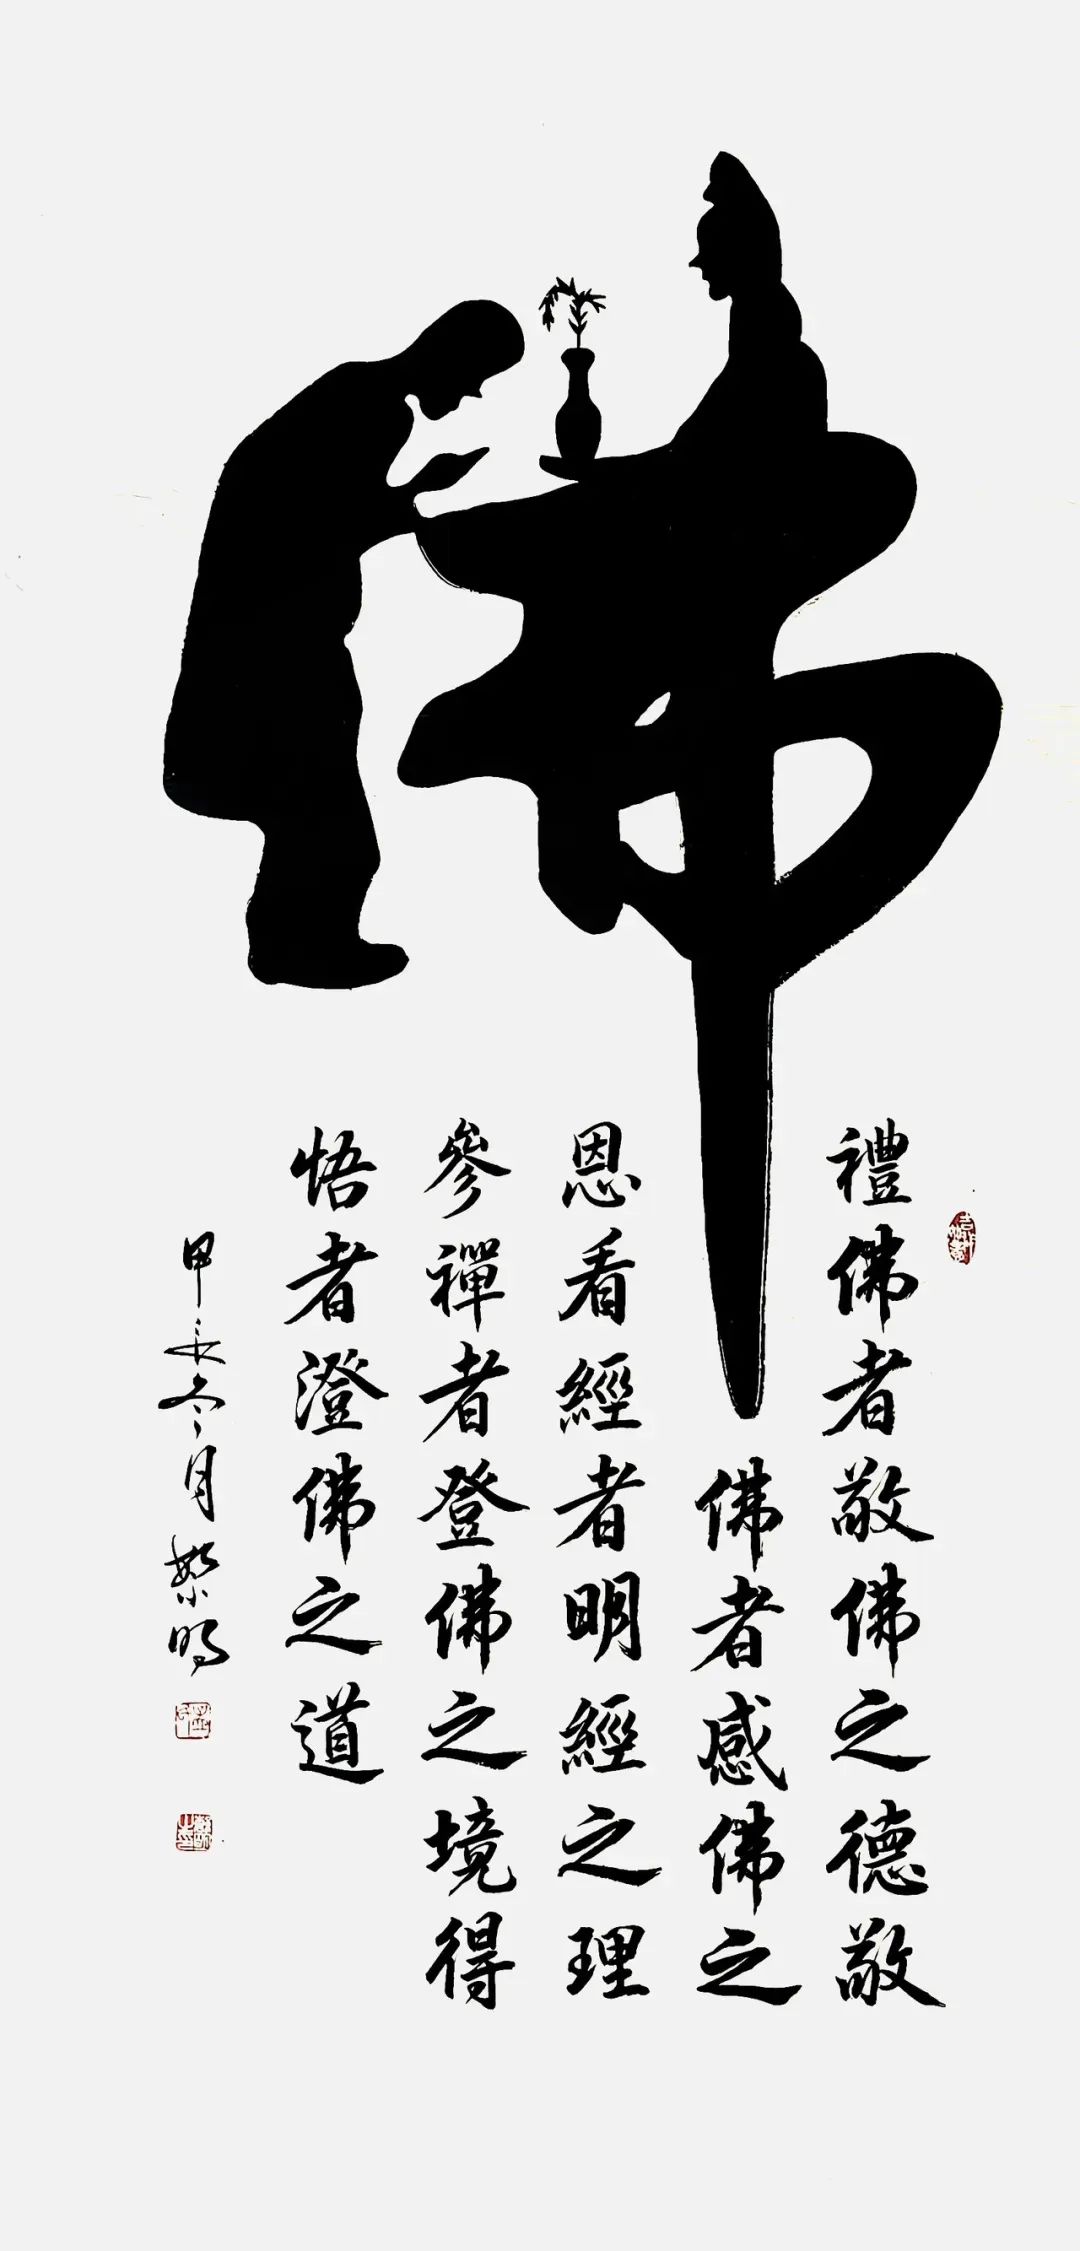 佛
禮佛者敬佛之德敬
佛者感佛之
恩看經者明經之理
參禪者登佛之境得
悟者澄佛之道
甲辰冬月